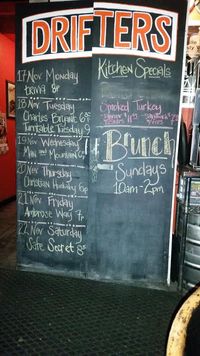 DRIFTERS
17 Nov Monday
trivia 8p
18 Nov Tuesday
Charles Bryant 6p
Turntable Tuesday 9
19 Nov Wednesday
Man and Mountain
20 Nov Thursday
Christian 6p
21 Nov Friday
Ambrose Way 7p
22 Nov Saturday
Safe Secret 8p
Kitchen Specials
Smoked Turkey
Brunch
Sundays
10am-2pm